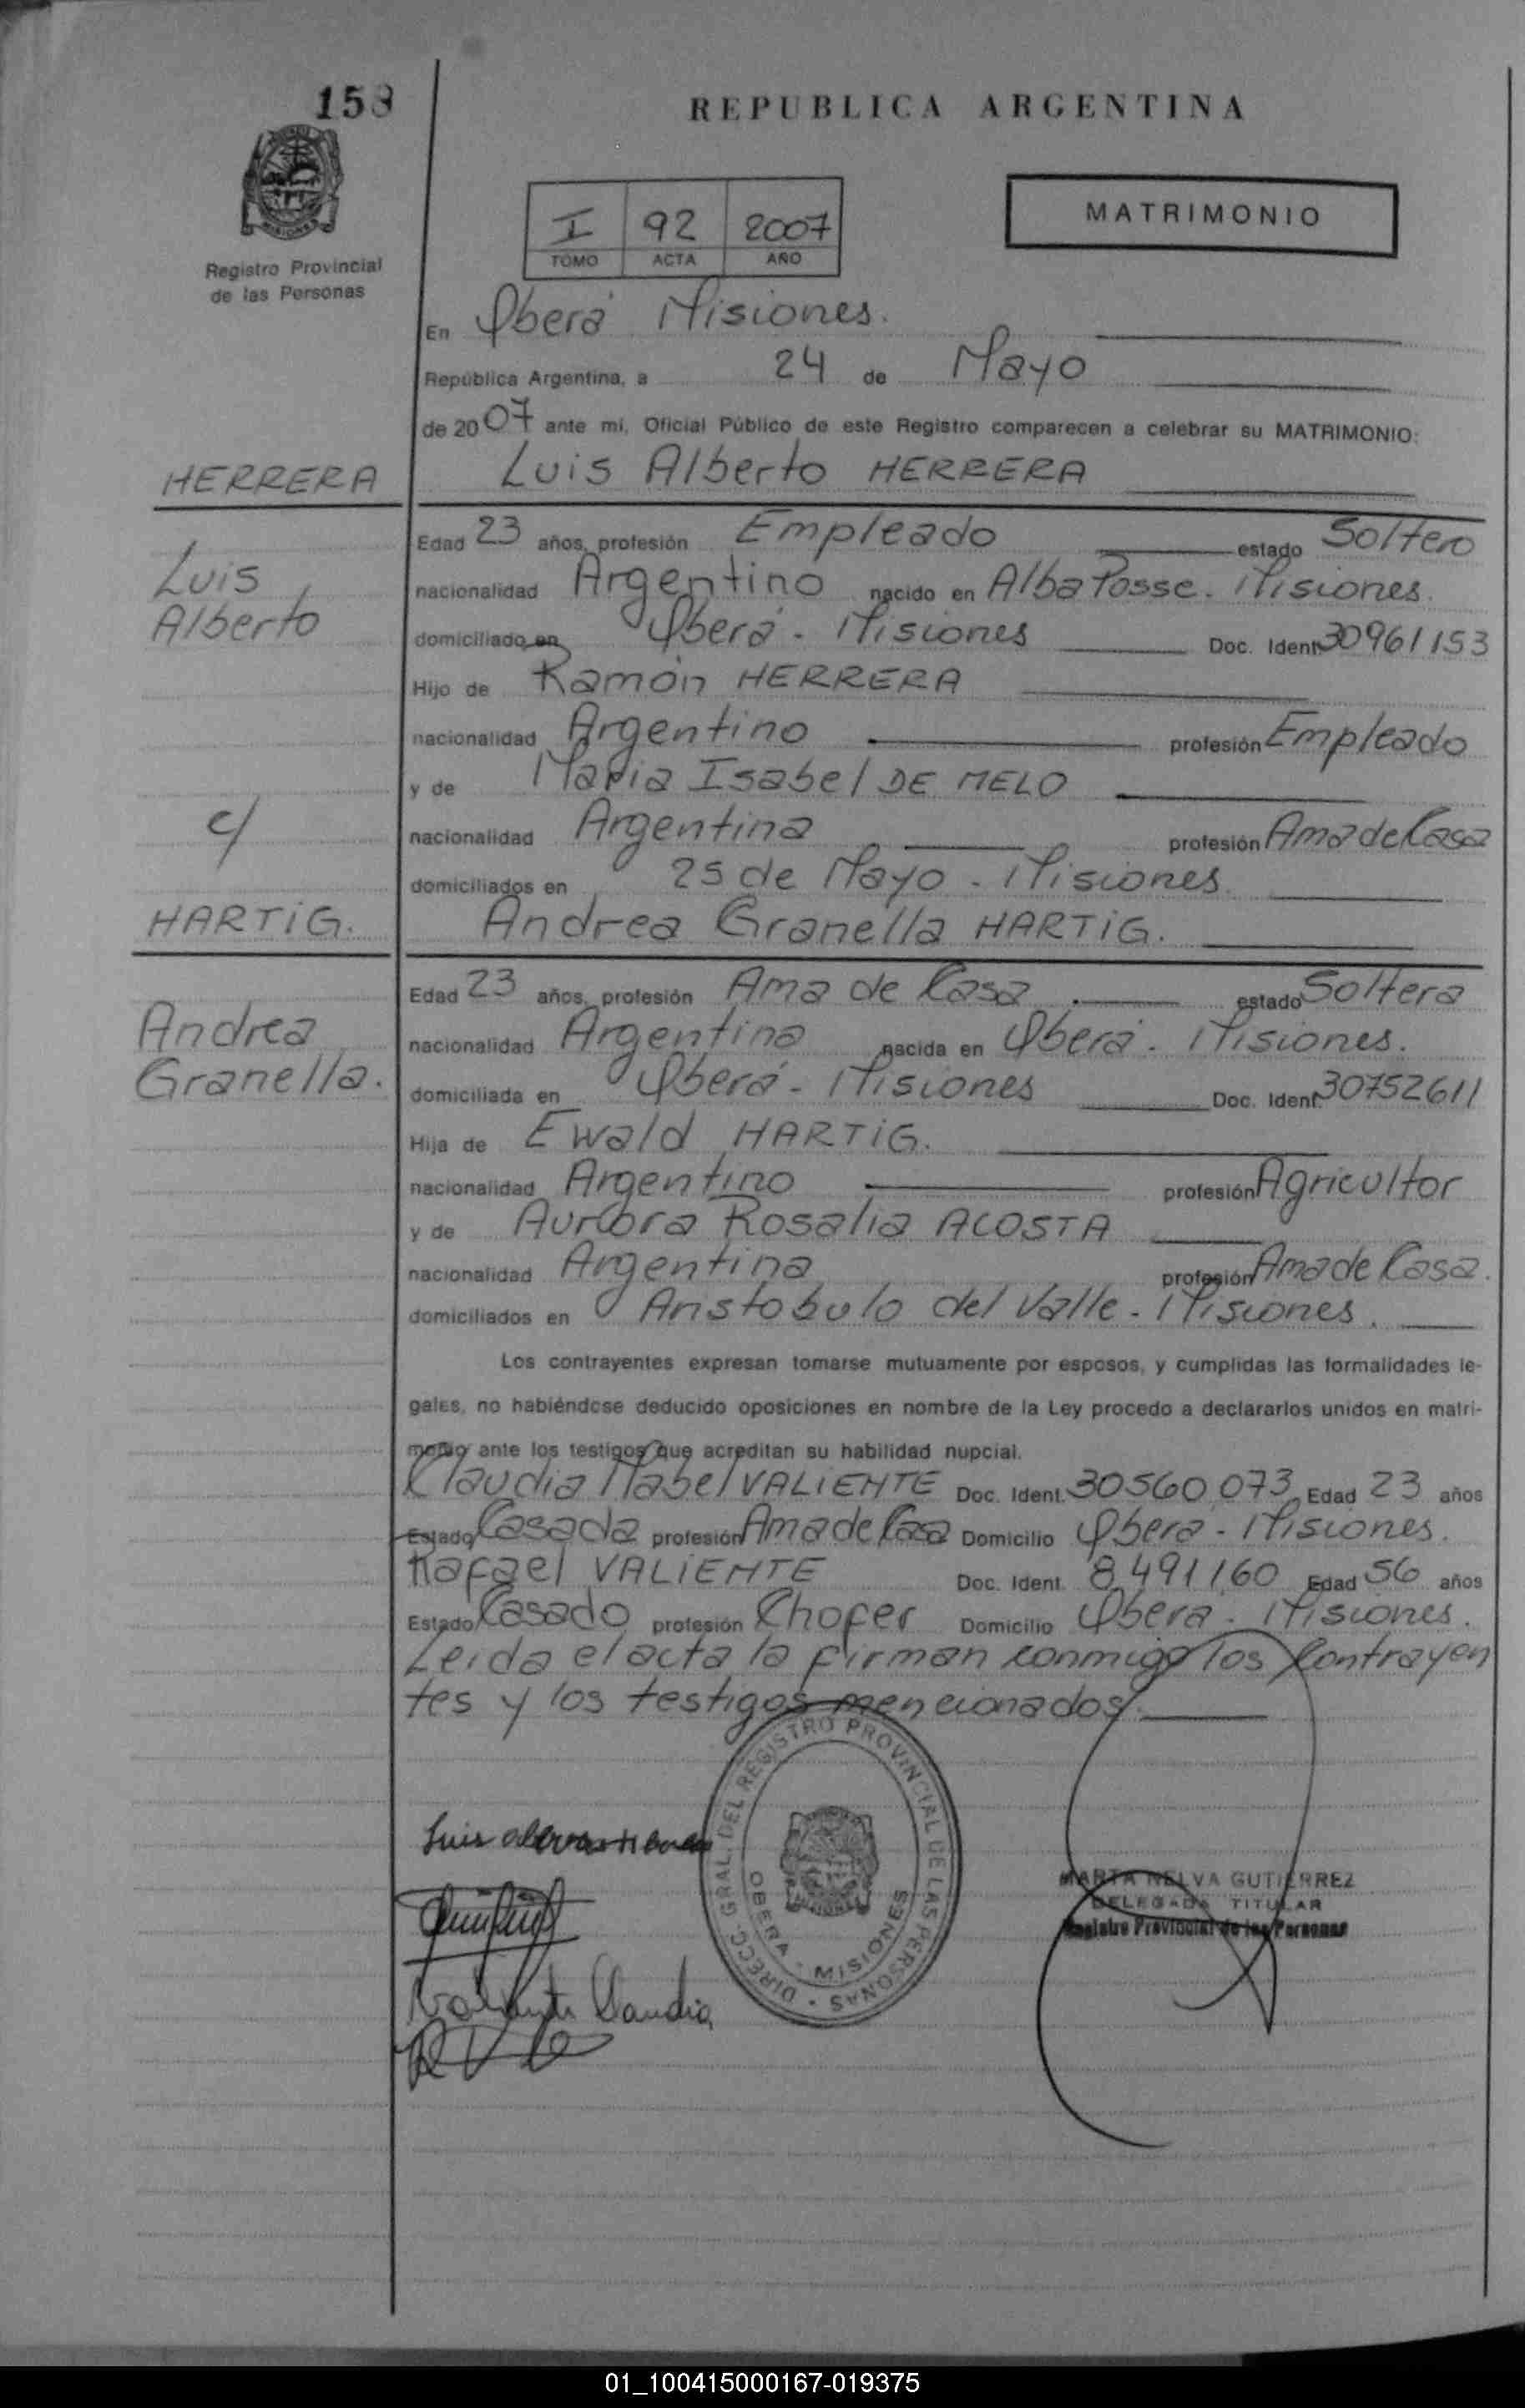 158
REPUBLICA ARGENTINA
MISIONES
Registro Provincial
de las Personas
I 92 2007
TOMO ACTA AÑO
MATRIMONIO
En Oberá Misiones.
República Argentina, a 24 de Mayo
de 2007 ante mi, Oficial Público de este Registro comparecen a celebrar su MATRIMONIO:
HERRERA
Luis Alberto HERRERA
Luis
Alberto
c/
HARTIG.
Andrea
Granella.
Edad 23 años, profesión Empleado estado Soltero
nacionalidad Argentino nacido en Alba Posse. Misiones.
domiciliado en Oberá - Misiones Doc. Ident. 30961153
Hijo de Ramón HERRERA
nacionalidad Argentino profesión Empleado
y de Maria Isabel DE MELO
nacionalidad Argentina profesión Ama de Casa
domiciliados en 25 de Mayo - Misiones.
Andrea Granella HARTIG.
Edad 23 años, profesión Ama de Casa estado Soltera
nacionalidad Argentina nacida en Oberá. Misiones.
domiciliada en Oberá - Misiones Doc. Ident. 30752611
Hija de Ewald HARTIG.
nacionalidad Argentino profesión Agricultor
y de Aurora Rosalia ACOSTA
nacionalidad Argentina profesión Ama de Casa.
domiciliados en Aristobulo del Valle - Misiones.
Los contrayentes expresan tomarse mutuamente por esposos, y cumplidas las formalidades le-
gales, no habiéndose deducido oposiciones en nombre de la Ley procedo a declararlos unidos en matri-
monio ante los testigos que acreditan su habilidad nupcial.
Claudia Mabel VALIENTE Doc. Ident. 30560.073 Edad 23 años
Estado Casada profesión Ama de Casa Domicilio Oberá - Misiones.
Rafael VALIENTE Doc. Ident. 8.491.160 Edad 56 años
Estado Casado profesión Chofer Domicilio Oberá - Misiones.
Leida el acta la firman conmigo los Contrayen
tes y los testigos mencionados.
DIRECC. GRAL. DEL REGISTRO PROVINCIAL DE LAS PERSONAS
OBERA - MISIONES
Luis
Valiente Claudia
MARTA NELVA GUTIERREZ
DELEGADA TITULAR
Registro Provincial de las Personas
01_100415000167-019375